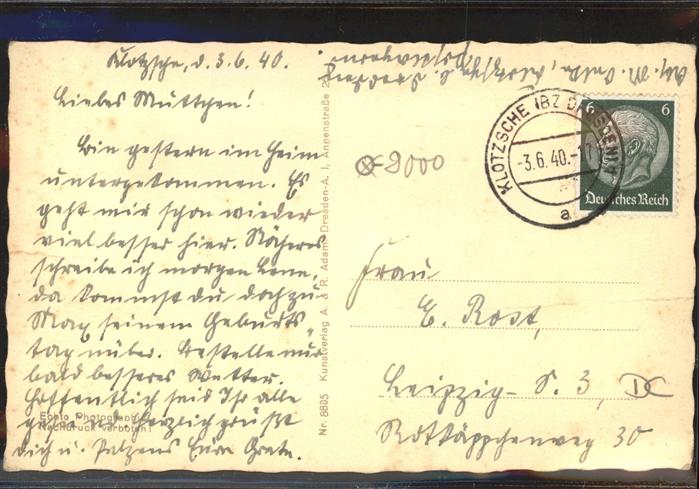 Klotzsche, d. 3.6.40.
Liebes Muttchen!
Bin gestern im Heim
untergekommen. Es
geht mir schon wieder
viel besser hier. Näheres
schreibe ich morgen
da kommst du doch zu
Max seinem Geburts-
tag rüber. Bestelle nur
bald besseres Wetter.
Hoffentlich seid Ihr alle
gesund. Herzlich grüßt
Dich u. Eure Grete.
Echte Photographie
Nachdruck verboten!
Nr. 8805 Kunstverlag A. & R. Adam, Dresden-A. 1, Annenstraße
2000
KLOTZSCHE (BZ DRESDEN)
-3.6.40.-17
a
6 6
Deutsches Reich
Frau
E. Rost,
Leipzig-S. 3,
Rotkäppchenweg 30